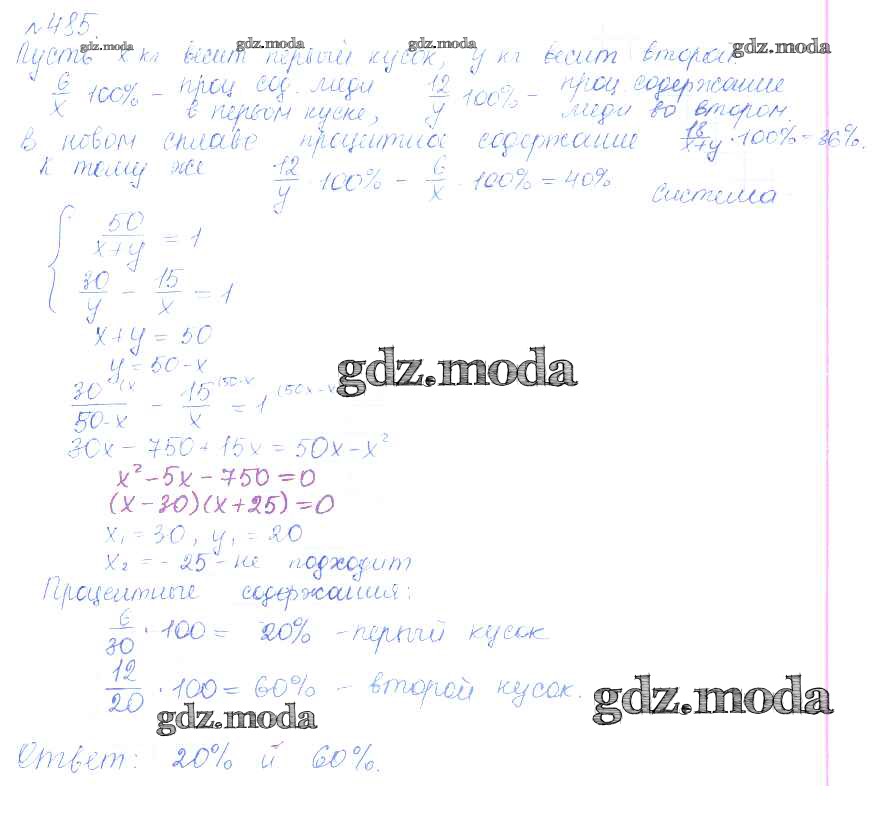 №485
gdz.moda gdz.moda gdz.moda
Пусть x кг весит первый кусок, y кг весит второй.
6/x · 100% – проц. сод. меди в первом куске, 12/y · 100% – проц. содержание меди во втором.
В новом сплаве процентное содержание 18/(x+y) · 100% = 36%.
К тому же 12/y · 100% – 6/x · 100% = 40% система
{ 50/(x+y) = 1
30/y – 15/x = 1
x + y = 50
y = 50 - x
gdz.moda
30/(50-x) – 15/x = 1
30x – 750 + 15x = 50x – x²
x² – 5x – 750 = 0
(x – 30)(x + 25) = 0
x₁ = 30, y₁ = 20
x₂ = – 25 – не подходит
Процентные содержания:
6/30 · 100 = 20% – первый кусок
12/20 · 100 = 60% – второй кусок.
gdz.moda gdz.moda
Ответ: 20% и 60%.